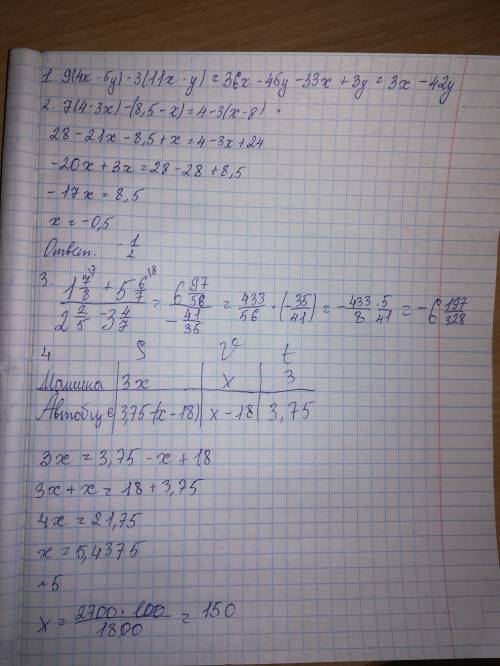 1. 9(4x - 5y) - 3(11x - y) = 36x - 45y - 33x + 3y = 3x - 42y
2. 7(4-3x) - (8,5 - x) = 4 - 3(x - 8)
28 - 21x - 8,5 + x = 4 - 3x + 24
-20x + 3x = 28 - 28 + 8,5
-17x = 8,5
x = -0,5
Ответ. -1/2
3. (1 7/8 + 5 6/7) / (2 2/5 - 3 4/7) = (6 97/56) / (-41/35) = 433/56 · (-35/41) = -433/8 · 5/41 = -6 197/328
4 S V t
Машина 3x x 3
Автобус 3,75-(x-18) x-18 3,75
3x = 3,75 - x + 18
3x + x = 18 + 3,75
4x = 21,75
x = 5,4375
~5
x = 2700 · 100 / 1800 = 150